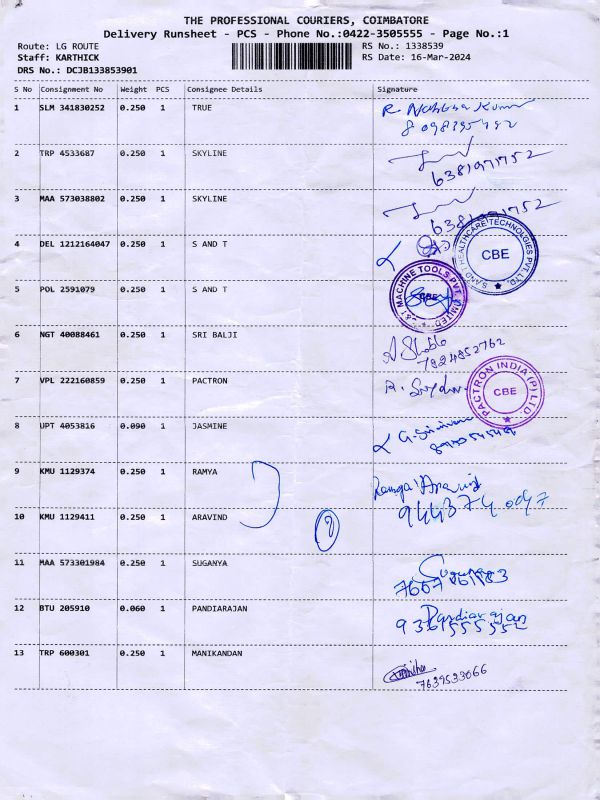 THE PROFESSIONAL COURIERS, COIMBATORE
Delivery Runsheet - PCS - Phone No.:0422-3505555 - Page No.:1
Route: LG ROUTE RS No.: 1338539
Staff: KARTHICK RS Date: 16-Mar-2024
DRS No.: DCJB133853901
S No Consignment No Weight PCS Consignee Details Signature
1 SLM 341830252 0.250 1 TRUE
2 TRP 4533687 0.250 1 SKYLINE
6381971752
3 MAA 573038802 0.250 1 SKYLINE
6381971752
4 DEL 1212164047 0.250 1 S AND T
HEALTHCARE TECHNOLOGIES PVT. LTD. CBE
5 POL 2591079 0.250 1 S AND T
MACHINE TOOLS PVT LIMITED CBE
6 NGT 40088461 0.250 1 SRI BALJI
7824852762
7 VPL 222160859 0.250 1 PACTRON
PACTRON INDIA (P) LTD. CBE
8 UPT 4053816 0.090 1 JASMINE
9 KMU 1129374 0.250 1 RAMYA
10 KMU 1129411 0.250 1 ARAVIND
11 MAA 573301984 0.250 1 SUGANYA
12 BTU 205910 0.060 1 PANDIARAJAN
Pandiarajan
13 TRP 600301 0.250 1 MANIKANDAN
7639533066